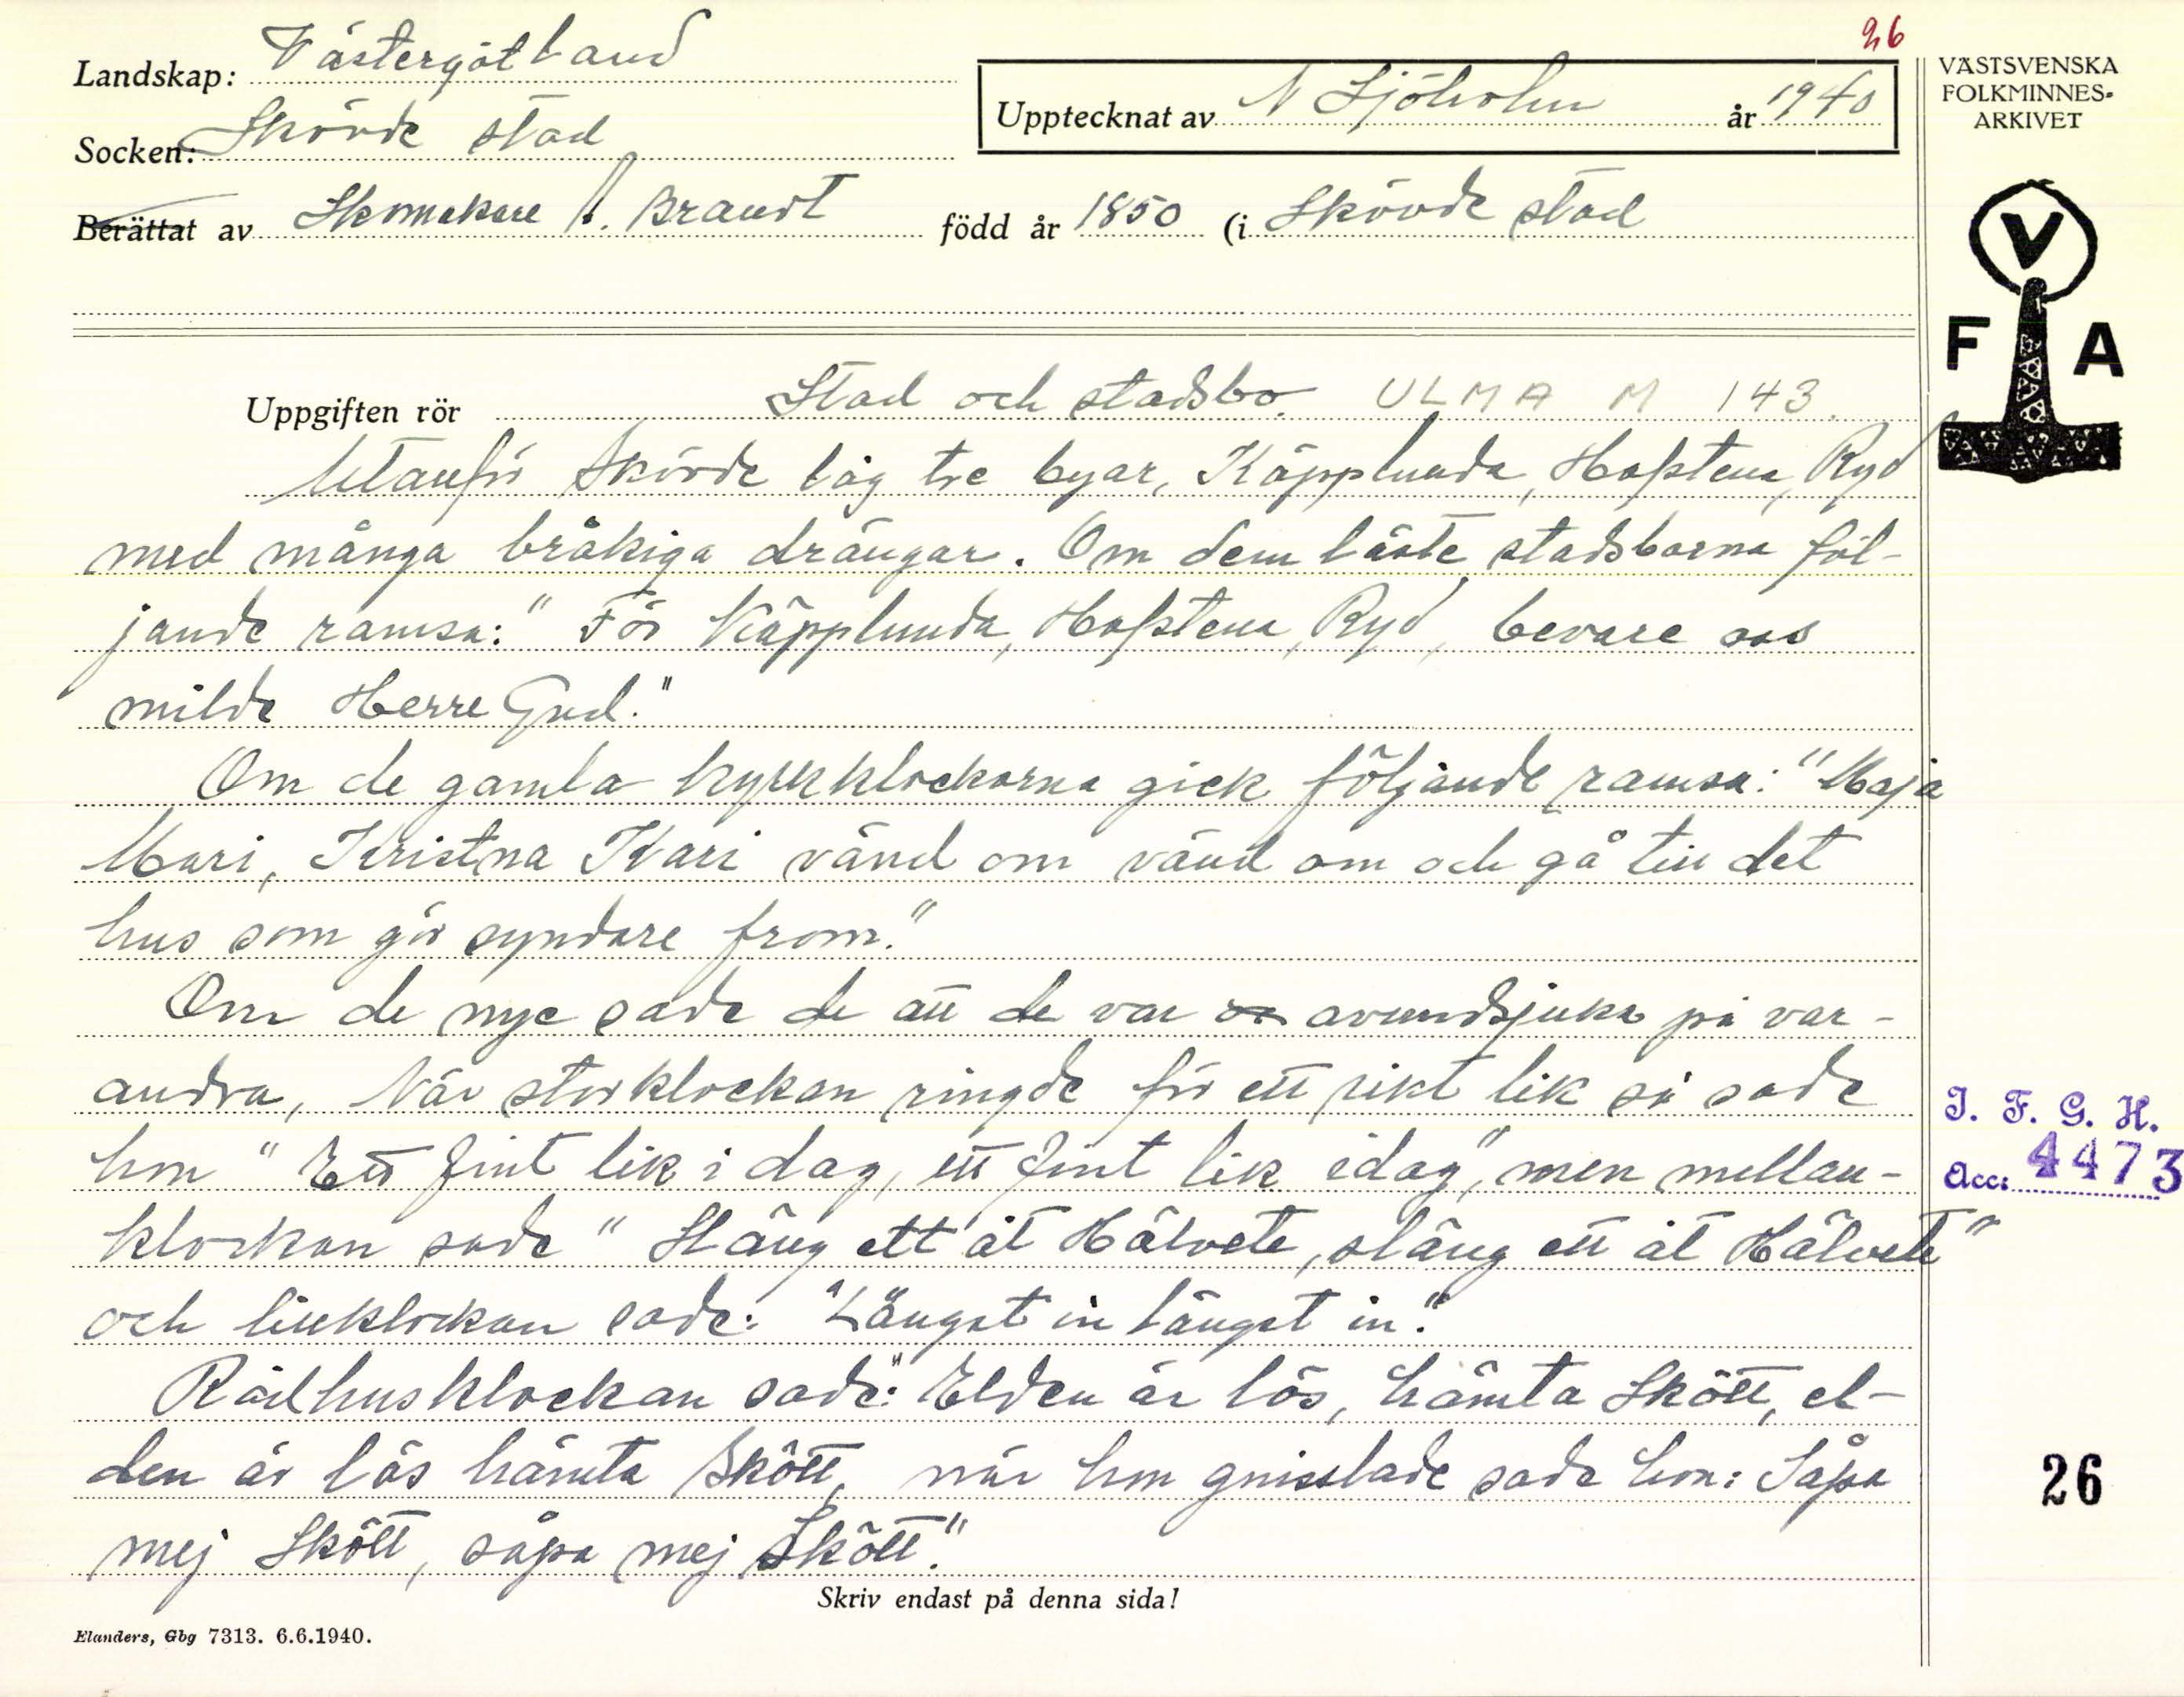 26
Landskap: Västergötland
Socken: Skövde stad
Upptecknat av N Sjöholm år 1940
Berättat av Skomakare A. Brandt född år 1850 (i Skövde stad
VÄSTSVENSKA
FOLKMINNES-
ARKIVET
V
F A
Uppgiften rör Stad och stadsbo. ULMA M 143.
Utanför Skövde låg tre byar, Käpplunda, Hasstena, Ryd
med många bråkiga drängar. Om dem läste stadsborna föl-
jande ramsa: "För Käpplunda, Hasstena, Ryd, bevare oss
milde Herre Gud."
Om de gamla kyrkklockorna gick följande ramsa: "Maja
Mari, Kristna Kari vänd om vänd om och gå till det
hus som gör syndare from."
Om de nye sade de att de var avundsjuka på var-
andra, När storklockan ringde för ett rikt lik så sade
hon "Ett fint lik i dag, ett fint lik idag", men mellan-
klockan sade "Släng ett åt Hälvete, släng ett åt Hälvete"
och lillklockan sade: "Längst in längst in."
Rådhusklockan sade: "Elden är lös, hämta Skött, el-
den är lös hämta Skött, när hon gnisslade sade hon: Såpa
mej Skött, såpa mej Skött."
I. F. G. H.
Acc: 4473
26
Skriv endast på denna sida!
Elanders, Gbg 7313. 6.6.1940.